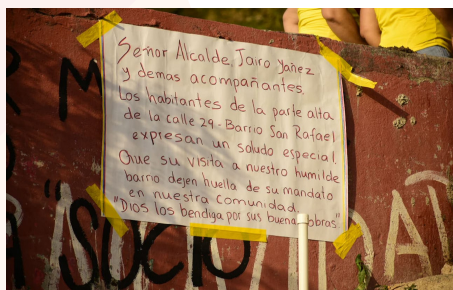 Señor Alcalde Jairo Yañez
y demas acompañantes.
Los habitantes de la parte alta
de la calle 29 - Barrio San Rafael
expresan un saludo especial.
Que su visita a nuestro humilde
barrio dejen huella de su mandato
en nuestra comunidad
"Dios los bendiga por sus buenas obras."
"SUCIO